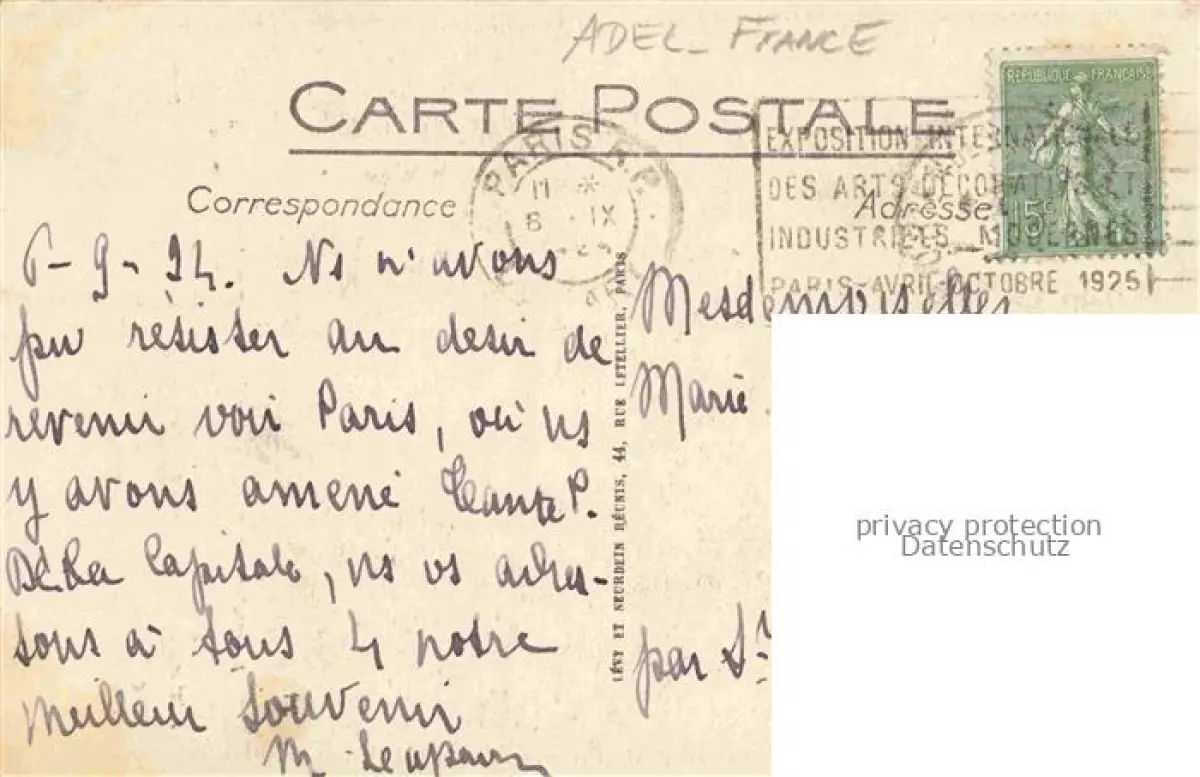 ADEL - FRANCE
CARTE POSTALE
RÉPUBLIQUE FRANÇAISE
15c
PARIS R.P.
11 *
6 IX
EXPOSITION INTERNATIONALE
DES ARTS DÉCORATIFS ET
INDUSTRIELS MODERNES
PARIS-AVRIL-OCTOBRE 1925
Correspondance
Adresse
6-9-24. Ns n'avons
pu résister au desir de
revenir voir Paris, où ns
y avons amené tante P.
De la Capitale, ns vs adres-
sons à tous 4 notre
meilleur souvenir
M.
LÉVY ET NEURDEIN RÉUNIS, 44, RUE LETELLIER, PARIS
Mesdemoiselles
Marie
par St
privacy protection
Datenschutz